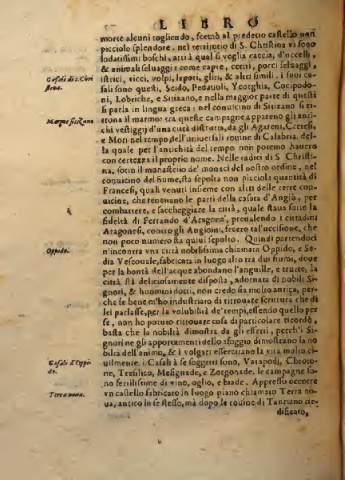 LIBRO
morte alcuni togliendo, scemò al predetto castello non
picciolo splendore. nel territorio di S. Christina vi sono
lodatissimi boschi, atti quali si veggia caccia, d'uccelli,
& animali seluaggi: come caprie, cerui, porci seluaggi,
istrici, vicci, volpi, lepori, gliri, & altri simili. i suoi ca-
sali sono questi, Scido, Pedauoli, Ycorghia, Cocipodo-
ni, Lobriche, e Sitizano, e nella maggior parte di questi
si parla in lingua greca: nel conuicino di Sitizano si ri-
troua il marmo: tra queste campagne appateno gli anti-
chi vestiggi d'una città distrutta, da gli Agareni, Cretesi,
e Mori nel tempo dell'uniuersali rouine di Calabria. del-
la quale per l'antichità del tempo non potemo hauere
con certezza il proprio nome. Nelle radici di S. Christi-
na, sotto il monasterio de' monaci del nostro ordine, nel
conuicino del fiume, sta sepolta non picciola quantità di
Francesi, quali venuti insieme con altri delle terre con-
uicine, che teneuano le parti della casata d'Angiò, per
combattere, e saccheggiare la città, quale staua sotto la
fideltà di Ferrando d'Aragona, preualendo i cittadini
Aragonesi, contro gli Angioini, fecero tal'uccisione, che
non poco numero sta quiui sepolto. Quindi partendoci
n'incontra vna città nobilissima chiamata Oppido, e Se-
dia Vescouale, fabricata in luogo alto tra dui fiumi, doue
per la bontà dell'acque abondano l'anguille, e trutte, la
città stà delitiosamente disposta, adornata di nobili Si-
gnori, & huomini dotti, non credo sia molto antica, per-
che se bene m'ho industriato di ritrouare scrittura che di
lei parlasse, per la volubilità de' tempi, essendo quello per
se, non ho potuto ritrouare cosa di particolare ricordo,
basta che la nobiltà dimostra da gli effetti, perch'i Si-
gnori ne gli apportamenti dello sfoggio dimostrano la no
biltà dell'animo, & i volgari essercitano la vita molto ci-
uilmente. i Casali à se soggetti sono, Varapodi, Chroto-
ne, Tresilico, Mesignade, e Zorgonade. le campagne so-
no fertilissime di vino, oglio, e biade. Appresso occorre
vn castello fabricato in luogo piano chiamato Terra no-
ua, antico in se stesso, mà dopo le rouine di Tauriano rie-
dificato,
Casali di S. Chri
stina.
Marmo si ritroua
Oppido.
Casali d'Oppi-
do.
Terra noua.